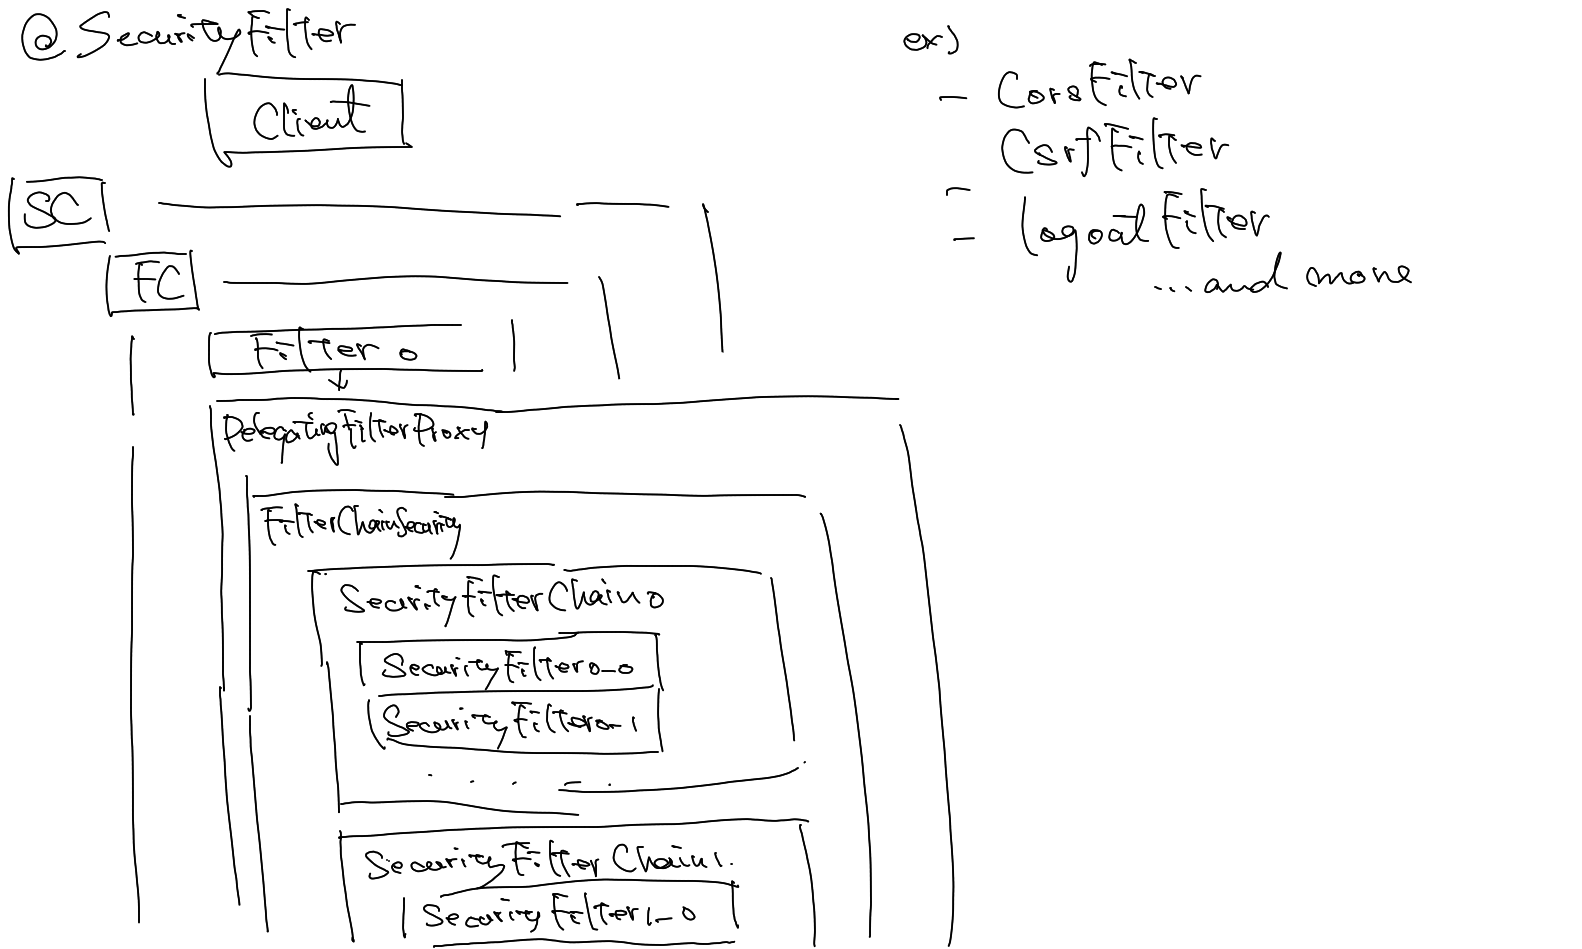 @SecurityFilter
Client
SC
FC
Filter 0
DelegatingFilterProxy
FilterChainSecurity
SecurityFilterChain0
SecurityFilter0-0
SecurityFilter0-1
....
SecurityFilterChain1.
SecurityFilter1-0
ex)
- CorsFilter
CsrfFilter
-
- logoutFilter
...and more